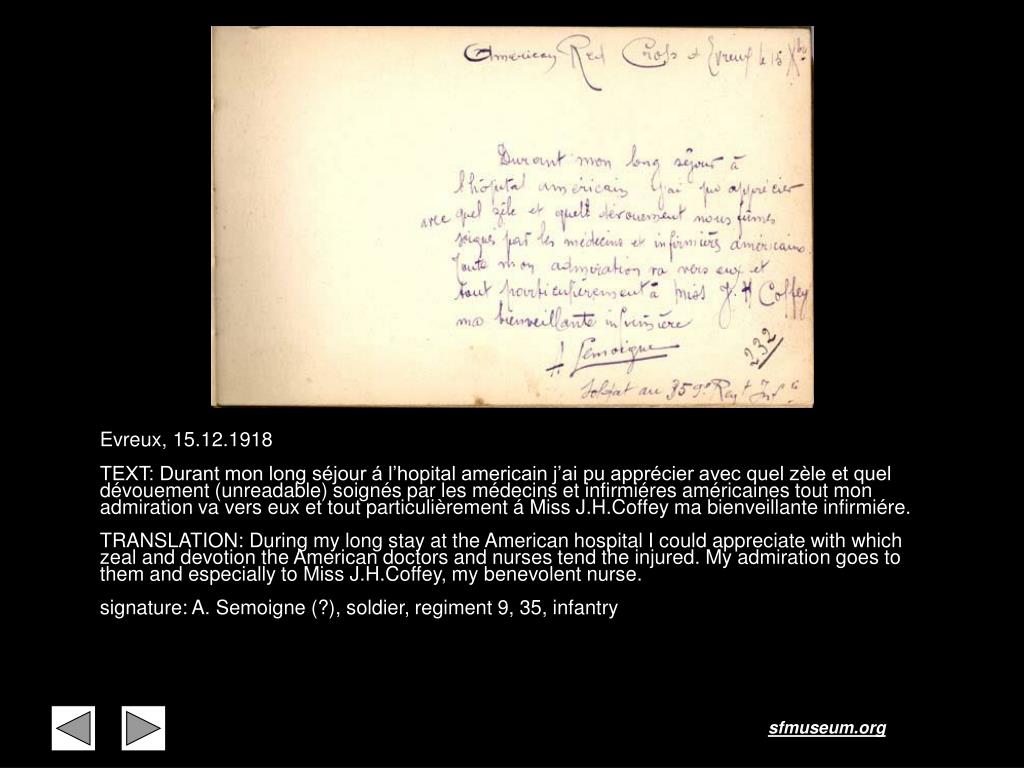 American Red Cross Evreux le 15 Xbre
Durant mon long séjour à
l'hôpital américain j'ai pu apprécier
avec quel zèle et quel dévouement nous fûmes
soignés par les médecins et infirmières américains.
Toute mon admiration va vers eux et
tout particulièrement à Miss J. H Coffey
ma bienveillante infirmière
232
Soldat au 359e Regt Infie
Evreux, 15.12.1918
TEXT: Durant mon long séjour á l’hopital americain j’ai pu apprécier avec quel zèle et quel
dévouement (unreadable) soignés par les médecins et infirmiéres américaines tout mon
admiration va vers eux et tout particulièrement á Miss J.H.Coffey ma bienveillante infirmiére.
TRANSLATION: During my long stay at the American hospital I could appreciate with which
zeal and devotion the American doctors and nurses tend the injured. My admiration goes to
them and especially to Miss J.H.Coffey, my benevolent nurse.
signature: A. Semoigne (?), soldier, regiment 9, 35, infantry
sfmuseum.org